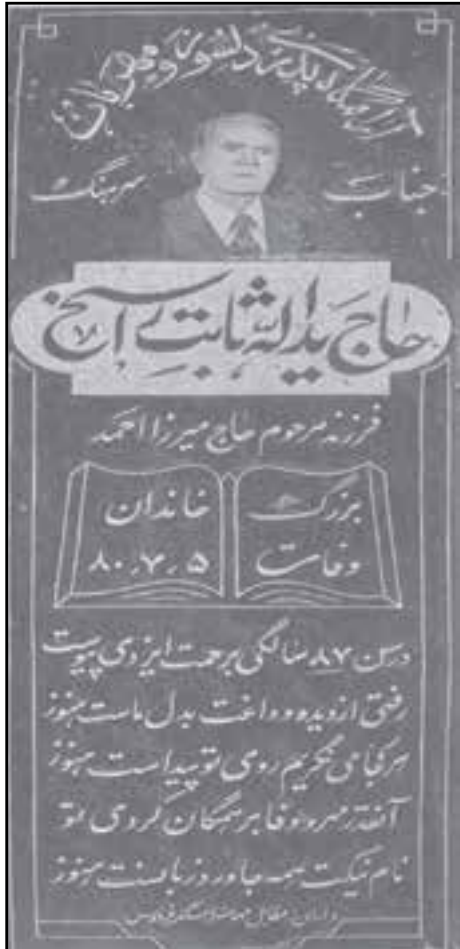 آرامگاه پدر دلسوز و مهربان
جناب سرهنگ
حاج یداله ثابت راسخ
فرزند مرحوم حاج میرزا احمد
بزرگ خاندان
وفات ۸۰٫۷٫۵
درسن ۸۷ سالگی برحمت ایزدی پیوست
رفتی از دیده و داغت بدل ماست هنوز
هر کجا می نگریم روی تو پیداست هنوز
آنقدر مهر و وفا بر همگان کردی تو
نام نیکت همه جا ورد زبانست هنوز